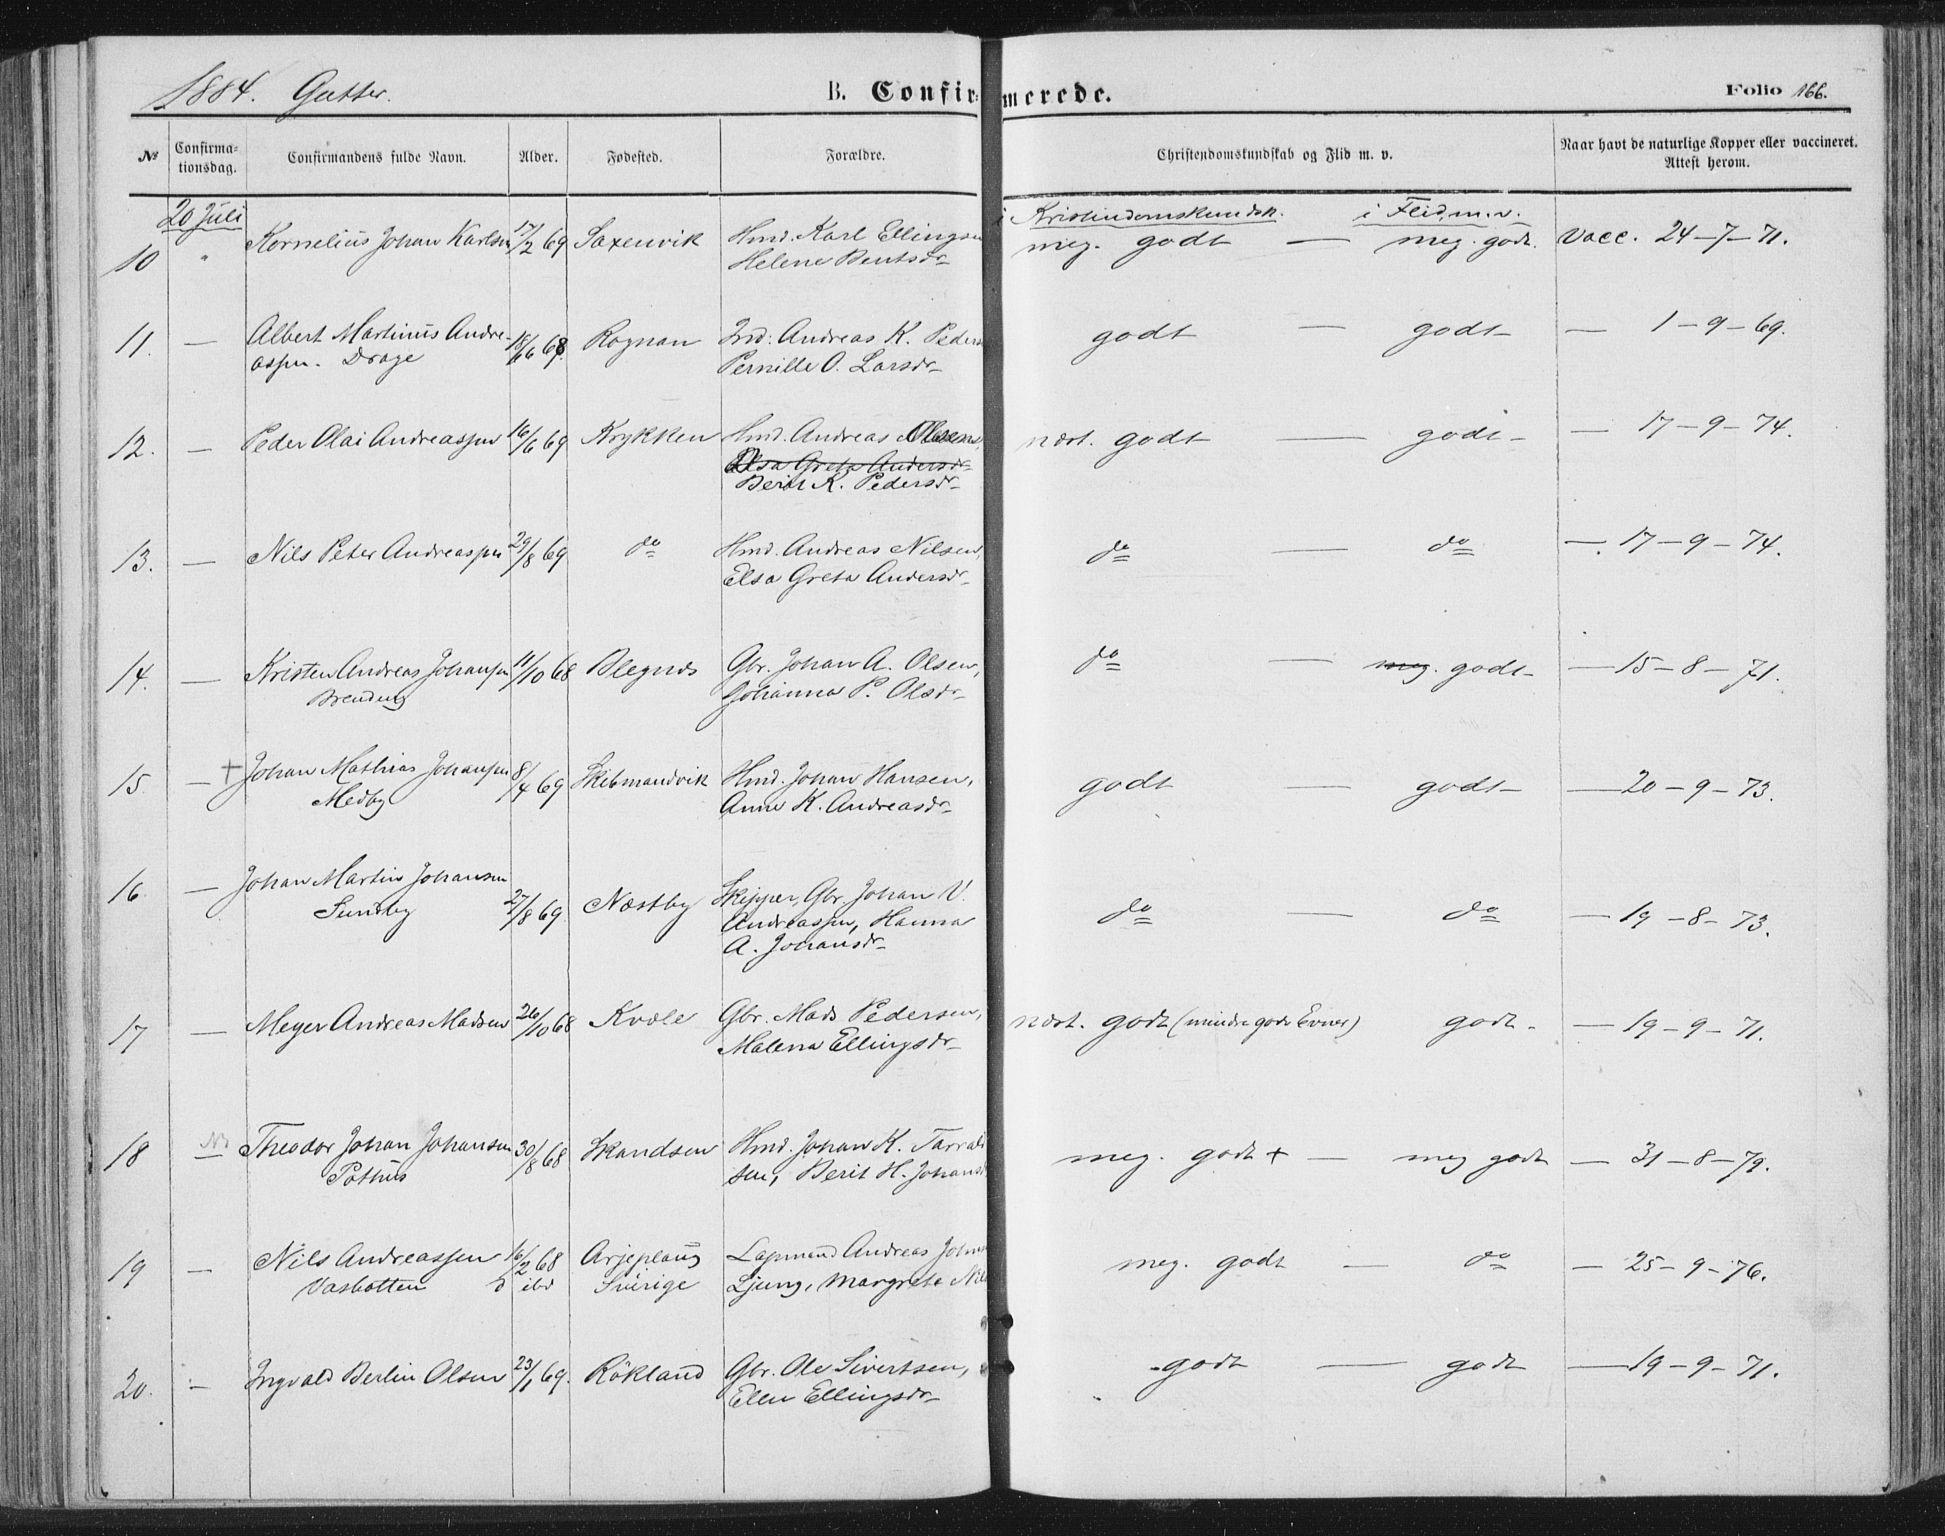 1884. Gutter. B. Confirmerede. Folio 166.
No Confirmationsdag. Confirmandens fulde Navn. Alder. Fødested. Forældre. Christendomskundskab og Flid m. v. Naar havt de naturlige Kopper eller vaccineret. Attest herom.
20 Juli i Kristendomskundsk. i Flid m.v.
10 " Kornelius Johan Karlsen 17/2 69 Saxenvik Hmd. Karl Ellingsen meg. godt — meg. godt. Vacc. 24-7-71.
Helene Bentsdr
11. — Albert Martinus Andre- 18/6 68 Rognan Ind. Andreas K. Peders godt — godt — 1-9-69.
assen. Drage Pernille O. Larsdr
12. — Peder Olai Andreassen 16/6 69 Krykken Hmd. Andreas Olsens, nært. godt — godt — 17-9-74.
Elsa Greta Andersdr
Berit K. Pedersdr
13. — Nils Peter Andreassen 29/8 69 do Hmd. Andreas Nilsen, do — do — 17-9-74.
Elsa Greta Andersdr
14. — Kristen Andreas Johansen 11/10 68 Blegnes Gbr. Johan A. Olsen, do — meg. godt — 15-8-71.
Brendeng Johanna P. Olsdr
15. — + Johan Mathias Johansen 8/4 69 Skibmandvik Hmd. Johan Hansen, godt — godt — 20-9-73.
Medby Anne K. Andreasdr
16. — Johan Martin Johansen 27/8 69 Næstby Skipper, Gbr. Johan V. do — do — 19-8-73.
Sundby Andreassen, Hanna
A. Johansdr
17 — Meyer Andreas Madsen 26/10 68 Kvæle Gbr. Mads Pedersen, nært. godt (mindre gode Evner) godt. — 19-9-71.
Malena Ellingsdr
18 — Theodor Johan Johansen 30/8 68 Skandsen Hmd. Johan K. Tarrald meg. godt + — meg godt — 31-8-79.
Pothus sen, Berit H. Johansd
19 — Nils Andreassen 16/2 68 Arjeploug Lapmand Andreas Johns meg. godt — do — 25-9-76.
Vasbotten d ibd Sverige Ljung, Margrete Nils
20. — Ingvald Berlin Olsen 23/1 69. Rökland Gbr. Ole Sivertsen, godt — godt — 19-9-71.
Ellen Ellingsdr